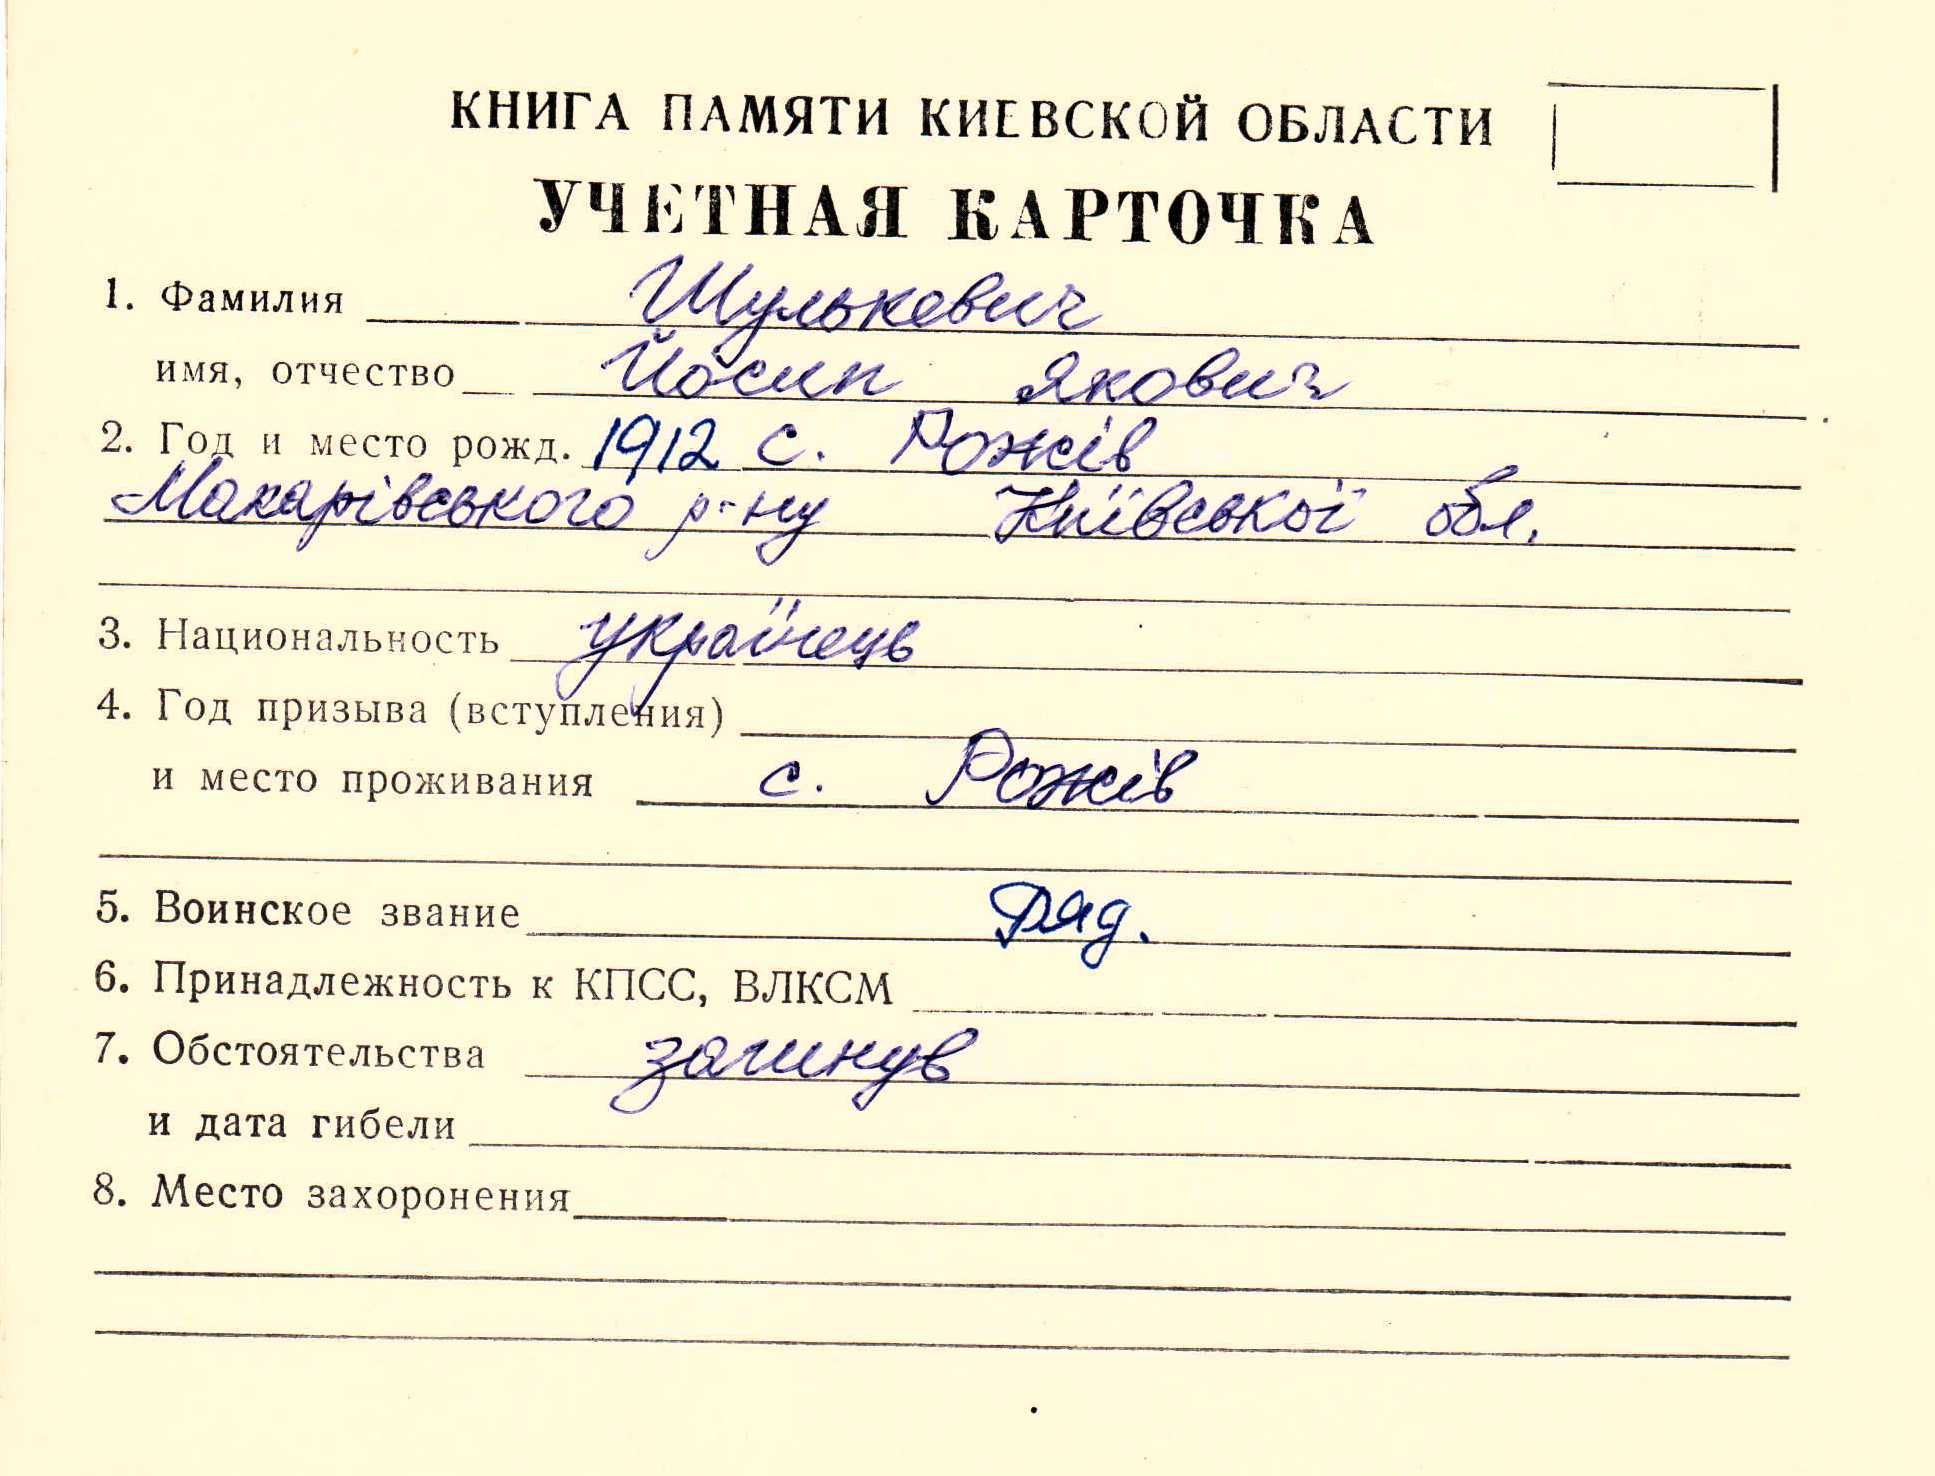 КНИГА ПАМЯТИ КИЕВСКОЙ ОБЛАСТИ
УЧЕТНАЯ КАРТОЧКА
1. Фамилия Шулькевич
имя, отчество Йосип Якович
2. Год и место рожд. 1912 с. Рожів
Макарівського р-ну Київської обл.
3. Национальность українець
4. Год призыва (вступления)
и место проживания с. Рожів
5. Воинское звание Ряд.
6. Принадлежность к КПСС, ВЛКСМ
7. Обстоятельства загинув
и дата гибели
8. Место захоронения